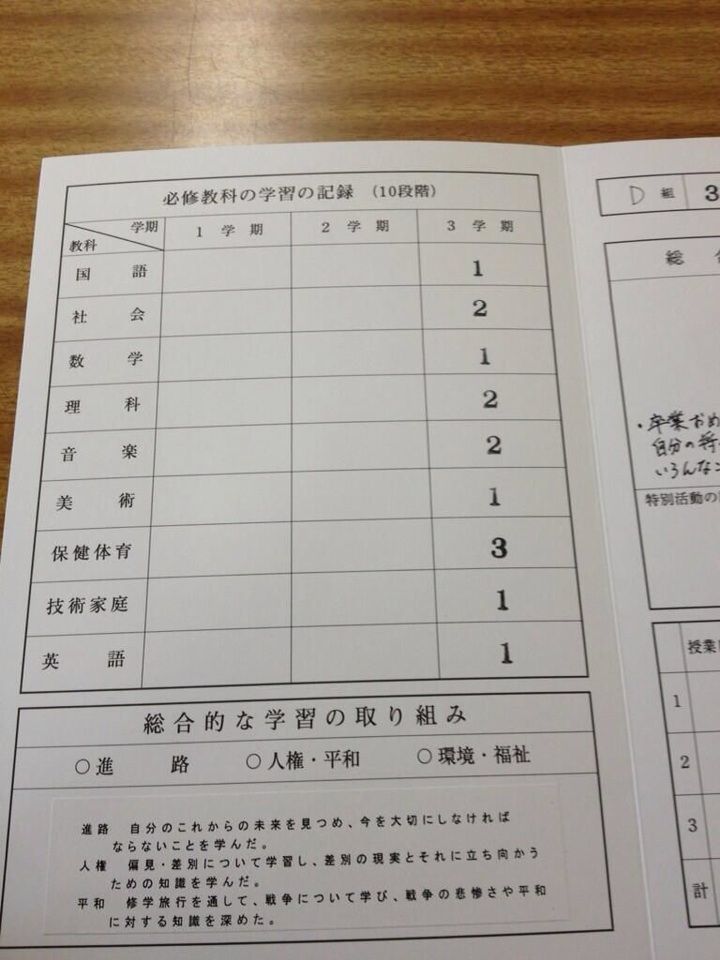 必修教科の学習の記録 (10段階)
学期
教科
1 学 期
2 学 期
3 学 期
国 語 1
社 会 2
数 学 1
理 科 2
音 楽 2
美 術 1
保健体育 3
技術家庭 1
英 語 1
総合的な学習の取り組み
○進 路 ○人権・平和 ○環境・福祉
進路 自分のこれからの未来を見つめ、今を大切にしなければ
ならないことを学んだ。
人権 偏見・差別について学習し、差別の現実とそれに立ち向かう
ための知識を学んだ。
平和 修学旅行を通して、戦争について学び、戦争の悲惨さや平和
に対する知識を深めた。
D 組 3
総
・卒業おめ
自分の
いろんな
特別活動の
授業
1
2
3
計